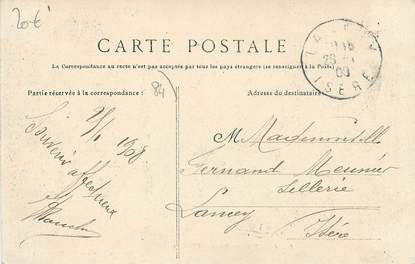 20€
CARTE POSTALE
La Correspondance au recto n'est pas acceptée par tous les pays étrangers (se renseigner à la Poste)
Partie réservée à la correspondance :
Adresse du destinataire
84
ISÈRE
1908
Souvenir
affectueux
M Mademoiselle
Fernand Meunier
Sellerie
Lancey
Isère